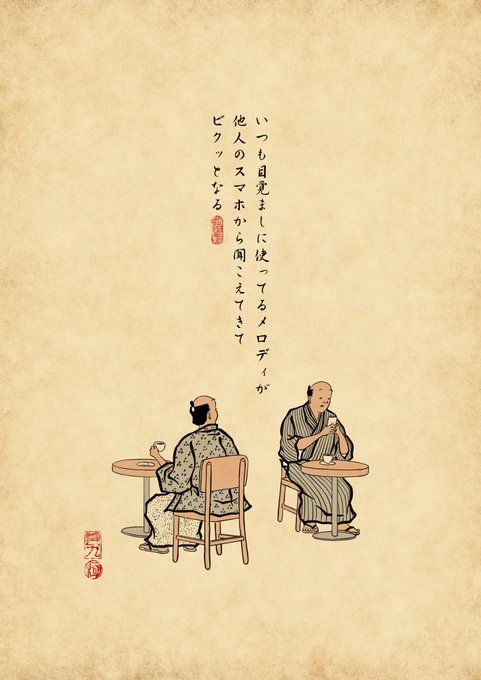 いつも目覚ましに使ってるメロディが
他人のスマホから聞こえてきて
ビクッとなる